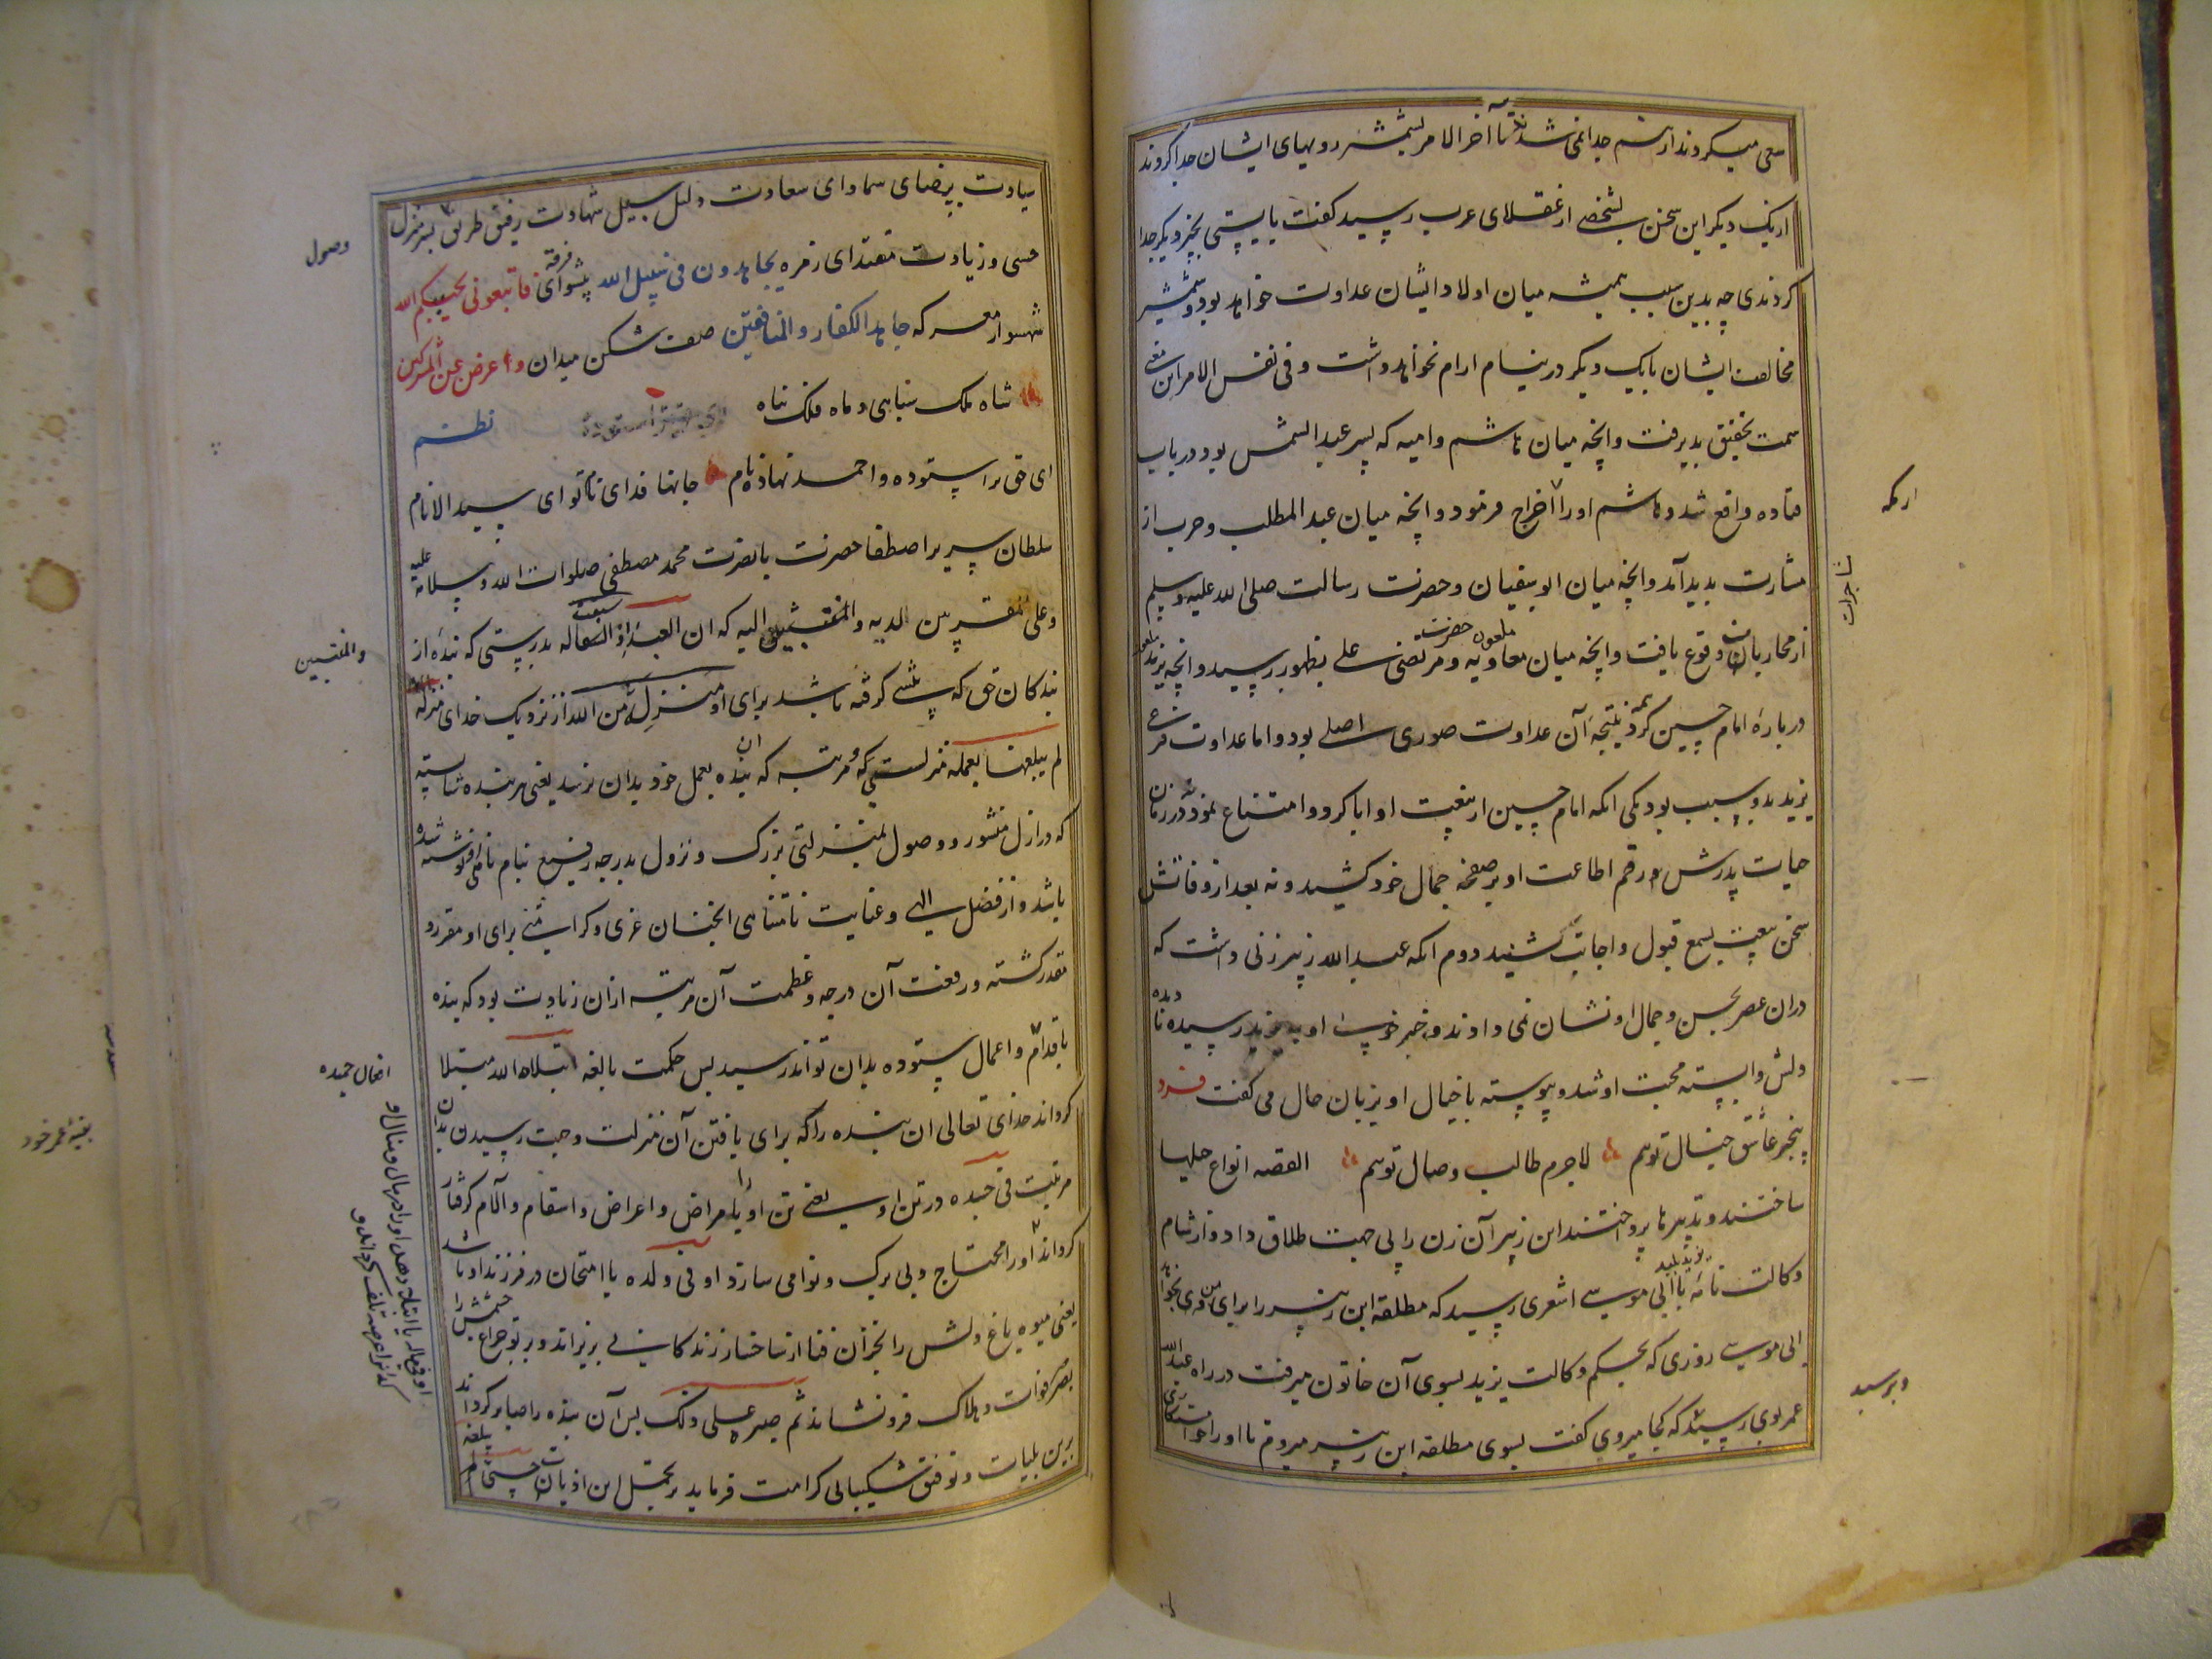 سعی میکردند از هم جدا نمی شدند تا آخر الامر بشمشیر رویهای ایشان جدا کردند
از یک دیگر این سخن بشخصی از عقلای عرب رسید کفت بایستی بچیز دیکر جدا
کردندی چه بدین سبب همیشه میان اولاد ایشان عداوت خواهد بود و شمشیر
مخالفت ایشان با یک دیکر در نیام ارام نخواهد داشت و فی نفس الامر این معنی
سمت تحقیق پذیرفت و آنچه میان هاشم و امیه که پسر عبد الشمس بود در باب
واقع شد و هاشم او را اخراج فرمود و آنچه میان عبد المطلب و حرب از
مشارت پدید آمد و آنچه میان ابو سفیان و حضرت رسالت صلی الله علیه و سلم
از محاربات وقوع یافت و آنچه میان معاویه ملعون و حضرت مرتضی علی بظهور رسید و آنچه یزید
درباره امام حسین کرد نتیجه آن عداوت صوری اصلی بود و اما عداوت فرعی
یزید بدو سبب بود یکی انکه امام حسین از بیعت او ابا کرد و امتناع نمود نه در زمان
حیات پدرش رقم اطاعت او بر صفحه جمال خود کشید و نه بعد از وفاتش
سخن بیعت بسمع قبول و اجابت شنید دوم انکه عبد الله زبیر زنی داشت که
دران عصر بحسن و جمال او نشان نمی دادند و خبر خوبی او به یزید رسیده نادیده
دلش وابسته محبت او شد و پیوسته با خیال او بزبان حال می کفت فرد
عاشق خیال توییم لاجرم طالب وصال توییم القصه انواع حیلها
ساختند و تدبیرها پرداختند ابن زبیر آن زن را بی جهت طلاق داد و از شام
وکالت نامه یزید پلید با ابی موسی اشعری رسید که مطلقه ابن زبیر را برای من
ابی موسی روزی که بحکم وکالت یزید بسوی آن خاتون میرفت در راه عبد الله
عمر بوی رسید که کجا میروی کفت بسوی مطلقه ابن زبیر میروم تا او را خواستکاری
وبرسید
سیادت بیضای سماوای سعادت دلیل سبیل شهادت رفیق طریق سرمنزل
وصول
حسنی و زیادت مقتدای زمره یجاهدون فی سبیل الله پیشوای فرقه فاتبعونی یحببکم الله
شهسوار معرکه جاهد الکفار والمنافقین صف شکن میدان واعرض عن المشرکین
شاه ملک سپاهی و ماه فلک پناه نظم
ای حق ترا ستوده و احمد نهاده نام جانها فدای نام تو ای سید الانام
سلطان سریر اصطفا حضرت با نصرت محمد مصطفی صلوات الله و سلامه علیه
وعلی المقربین لدیه والمنتسبین الیه که ان العبد اذا سبقت له بدرستی که بنده از
والمنتسبین
بندکان حق که پیشی کرفته باشد برای او منزلة من الله از نزدیک خدای منزله
لم یبلغها بعمله منزلتی و مرتبه که ان بنده بعمل خود بدان نرسد یعنی هر بنده شایسته
که در ازل منشور وصول بمنزلتی بزرک و نزول بدرجه رفیع بنام نامی او نوشته شده
باشد و از فضل الهی و عنایت نامتناهی انچنان عزی و کرامتی برای او مقرر و
مقدر کشته و رفعت آن درجه و عظمت آن مرتبه ازان زیادت بود که بنده
باقدام و اعمال ستوده بدان تواند رسید پس حکمت بالغه ابتلاه الله مبتلا
افعال حمیده
کرداند خدای تعالی ان بنده را که برای یافتن آن منزلت و جهت رسیدن بدان
مرتبت فی جسده در تن او یعنی تن او را بامراض و اعراض و اسقام و آلام کرفتار
کرداند او را محتاج و بی برک و نوا می سازد او فی ولده یا امتحان در فرزند او باشد
یعنی میوه باغ دلش را بخزان فنا از شاخسار زندکانی بریزاند و پرتو چراغ چشمش را
بصرصر فوات و هلاک فرو نشاند ثم صبره علی ذلک پس آن بنده را صابر کرداند
برین بلیات و توفیق شکیبائی کرامت فرماید بر تحمل این اذیات حتی یبلغه
بقیه عمر خود